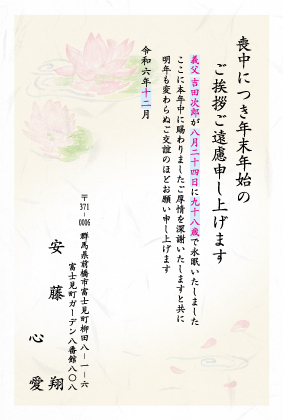 喪中につき年末年始の
ご挨拶ご遠慮申し上げます
義父 吉田次郎が八月二十四日に九十八歳で永眠いたしました
ここに本年中に賜わりましたご厚情を深謝いたしますと共に
明年も変わらぬご交誼のほどお願い申し上げます
令和六年十二月
〒371-0006 群馬県前橋市富士見町柳田八-一-六
富士見町ガーデン八番館八〇八
安藤 心翔
愛